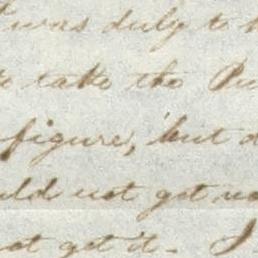 was duly to
to take the
figure, but
uld not get
not get it. I